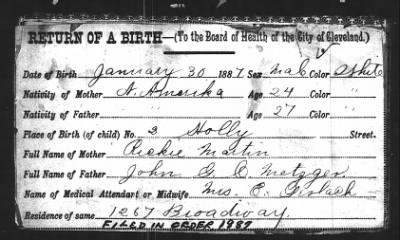 RETURN OF A BIRTH—(To the Board of Health of the City of Cleveland.)
Date of Birth January 30 1887 Sex Male Color White
Nativity of Mother N. Amerika Age 24 Color "
Nativity of Father " Age 27 Color "
Place of Birth (of child) No. 3 Holly Street.
Full Name of Mother Rickie Martin
Full Name of Father John G. D. Metzger.
Name of Medical Attendant or Midwife Mrs. E. Gerlach
Residence of same 1267 Broadway.
FILED IN ORDER 1987